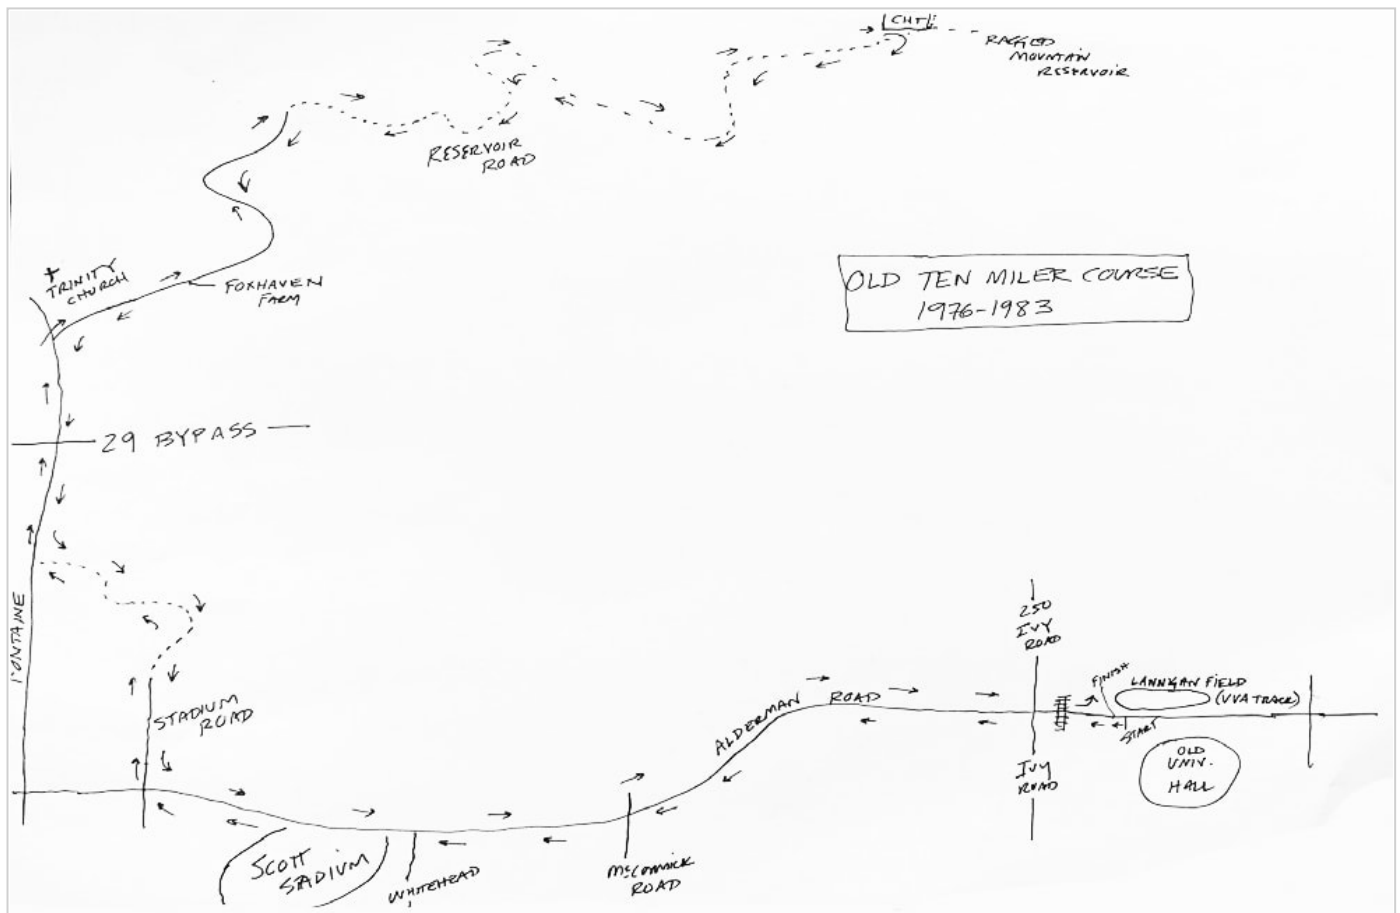 CHT
RAGGED
MOUNTAIN
RESERVOIR
RESERVOIR
ROAD
TRINITY
CHURCH
FOXHAVEN
FARM
OLD TEN MILER COURSE
1976-1983
29 BYPASS
FONTAINE
STADIUM
ROAD
250
IVY
ROAD
FINISH
LANNIGAN FIELD
(UVA TRACK)
ALDERMAN ROAD
START
OLD
UNIV.
HALL
IVY
ROAD
SCOTT
SADIUM
WHITEHEAD
McCORMICK
ROAD